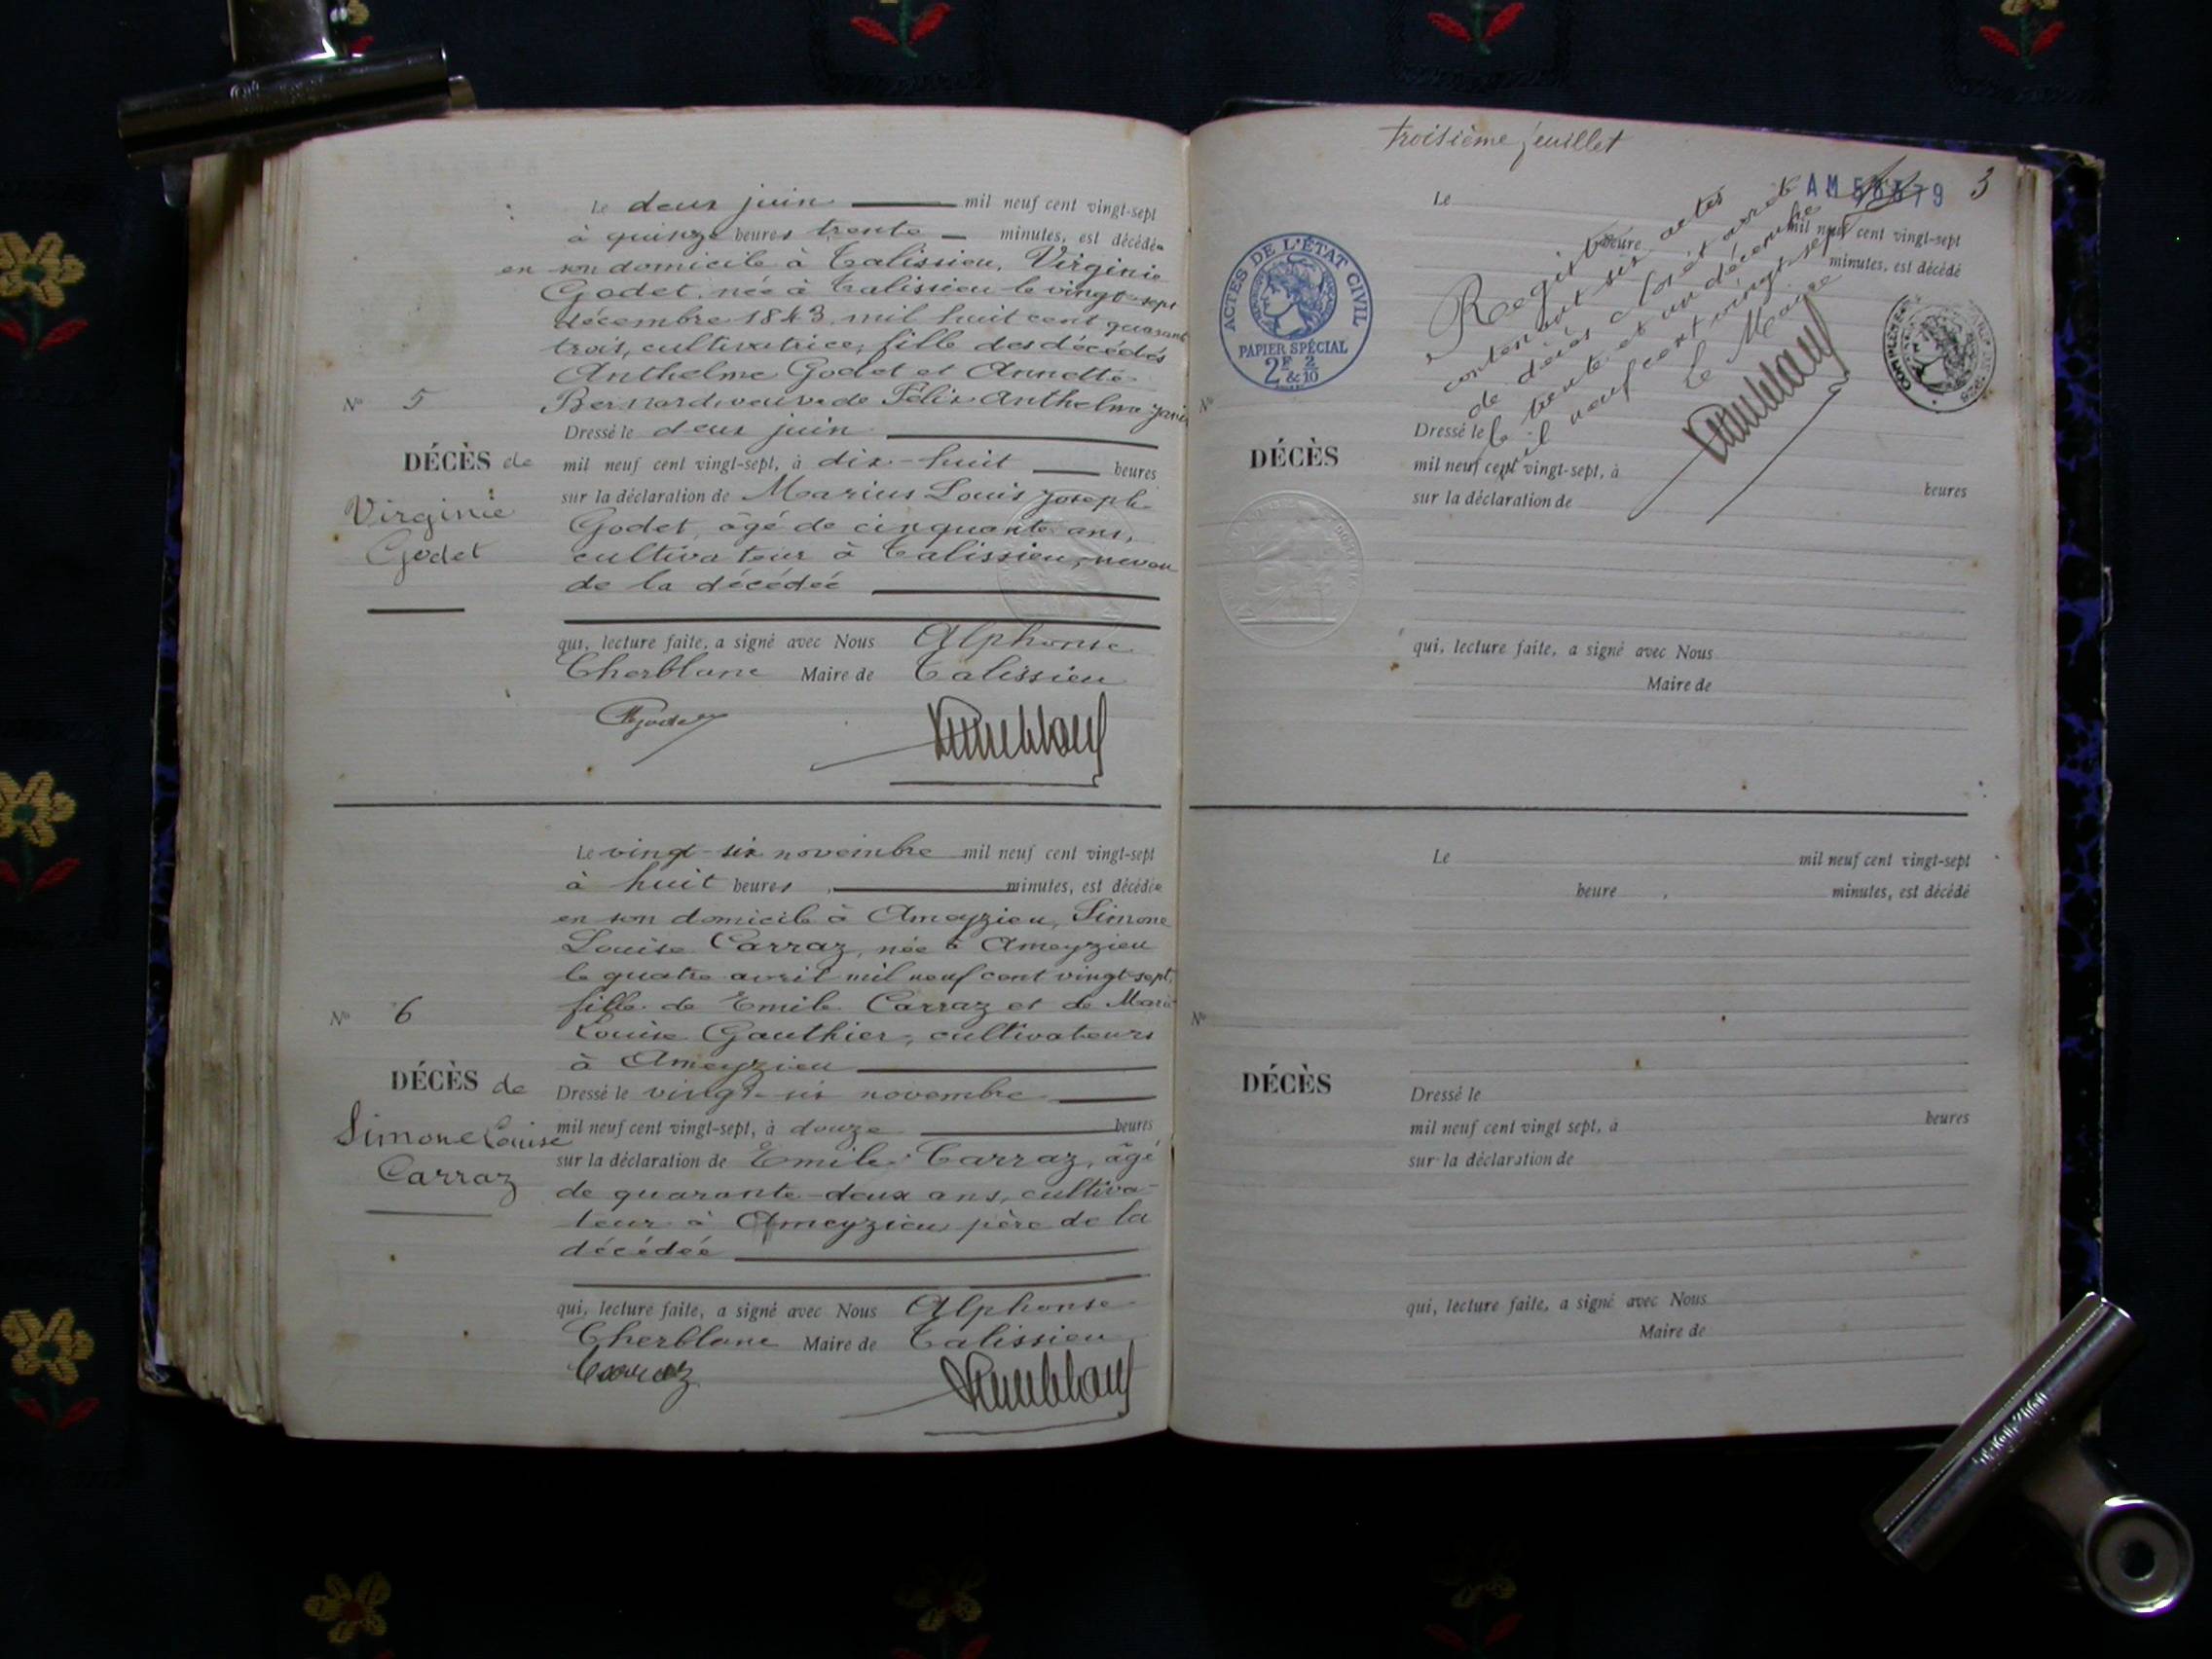 Le deux juin mil neuf cent vingt-sept
à quinze heures trente minutes, est décédée
en son domicile à Talissieu, Virginie
Godet, née à Talissieu le vingt-sept
décembre 1843 mil huit cent quarante
trois, cultivatrice, fille des décédés
Anthelme Godet et Annette
No 5
Bernard, veuve de Félix Anthelme
Dressé le deux juin
DÉCÈS de
mil neuf cent vingt-sept, à dix-huit heures
Virginie
Godet
sur la déclaration de Marius Louis Joseph
Godet, âgé de cinquante ans,
cultivateur à Talissieu, neveu
de la décédée
qui, lecture faite, a signé avec Nous Alphonse
Cherblanc Maire de Talissieu
Godet
Le vingt-six novembre mil neuf cent vingt-sept
à huit heures minutes, est décédée
en son domicile à Ameyzieu, Simone
Louise Carraz, née à Ameyzieu
le quatre avril mil neuf cent vingt-sept,
fille de Emile Carraz et de Marie
No 6
Louise Gauthier, cultivateurs
à Ameyzieu
DÉCÈS de
Dressé le vingt-six novembre
Simone Louise
Carraz
mil neuf cent vingt-sept, à douze heures
sur la déclaration de Emile Carraz, âgé
de quarante-deux ans, cultiva-
teur à Ameyzieu père de la
décédée
qui, lecture faite, a signé avec Nous Alphonse
Cherblanc Maire de Talissieu
Carraz
troisième feuillet
AM 3
Le mil neuf cent vingt-sept
heure minutes, est décédé
Registre
contenant six actes
de décès clos et arrêté
le trente et un décembre
mil neuf cent vingt-sept
Le Maire
ACTES DE L'ÉTAT CIVIL
PAPIER SPÉCIAL
2F & 2/10
No
DÉCÈS
Dressé le
mil neuf cent vingt-sept, à heures
sur la déclaration de
qui, lecture faite, a signé avec Nous
Maire de
Le mil neuf cent vingt-sept
heure minutes, est décédé
No
DÉCÈS
Dressé le
mil neuf cent vingt sept, à heures
sur la déclaration de
qui, lecture faite, a signé avec Nous
Maire de